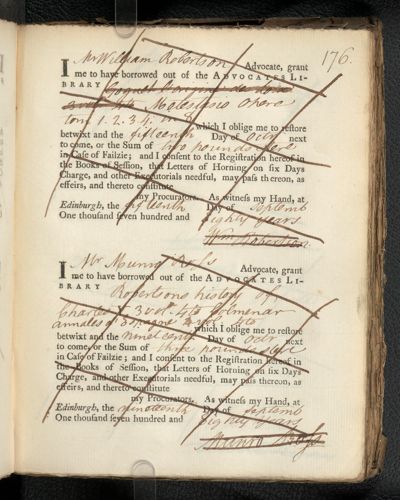 176.
I Mr William Robertson Advocate, grant
me to have borrowed out of the ADVOCATES LI-
BRARY Goguet Origin de
4to Metestasio opere
tom 1. 2. 3. 4. in 8 which I oblige me to restore
betwixt and the fifteenth Day of octr next
to come, or the Sum of two pounds
in Case of Failzie; and I consent to the Registration hereof in
the Books of Session, that Letters of Horning on six Days
Charge, and other Executorials needful, may pass thereon, as
effeirs, and thereto constitute
my Procurators. As witness my Hand, at
Edinburgh, the fifteenth Day of Septemb
One thousand seven hundred and eighty years
Wm Robertson
I Mr Munro Advocate, grant
me to have borrowed out of the ADVOCATES LI-
BRARY Robertsons history of
Charles 5 3 vol. 4to Colmenar
annales d'Espagne 2 vol 4to which I oblige me to restore
betwixt and the nineteenth Day of octr next
to come, or the Sum of three pounds
in Case of Failzie; and I consent to the Registration hereof in
the Books of Session, that Letters of Horning on six Days
Charge, and other Executorials needful, may pass thereon, as
effeirs, and thereto constitute
my Procurators. As witness my Hand, at
Edinburgh, the nineteenth Day of Septemb
One thousand seven hundred and eighty years
Munro